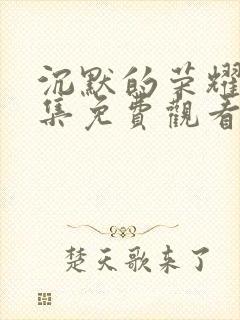 沉默的荣耀
集免費觀看
楚天歌来了